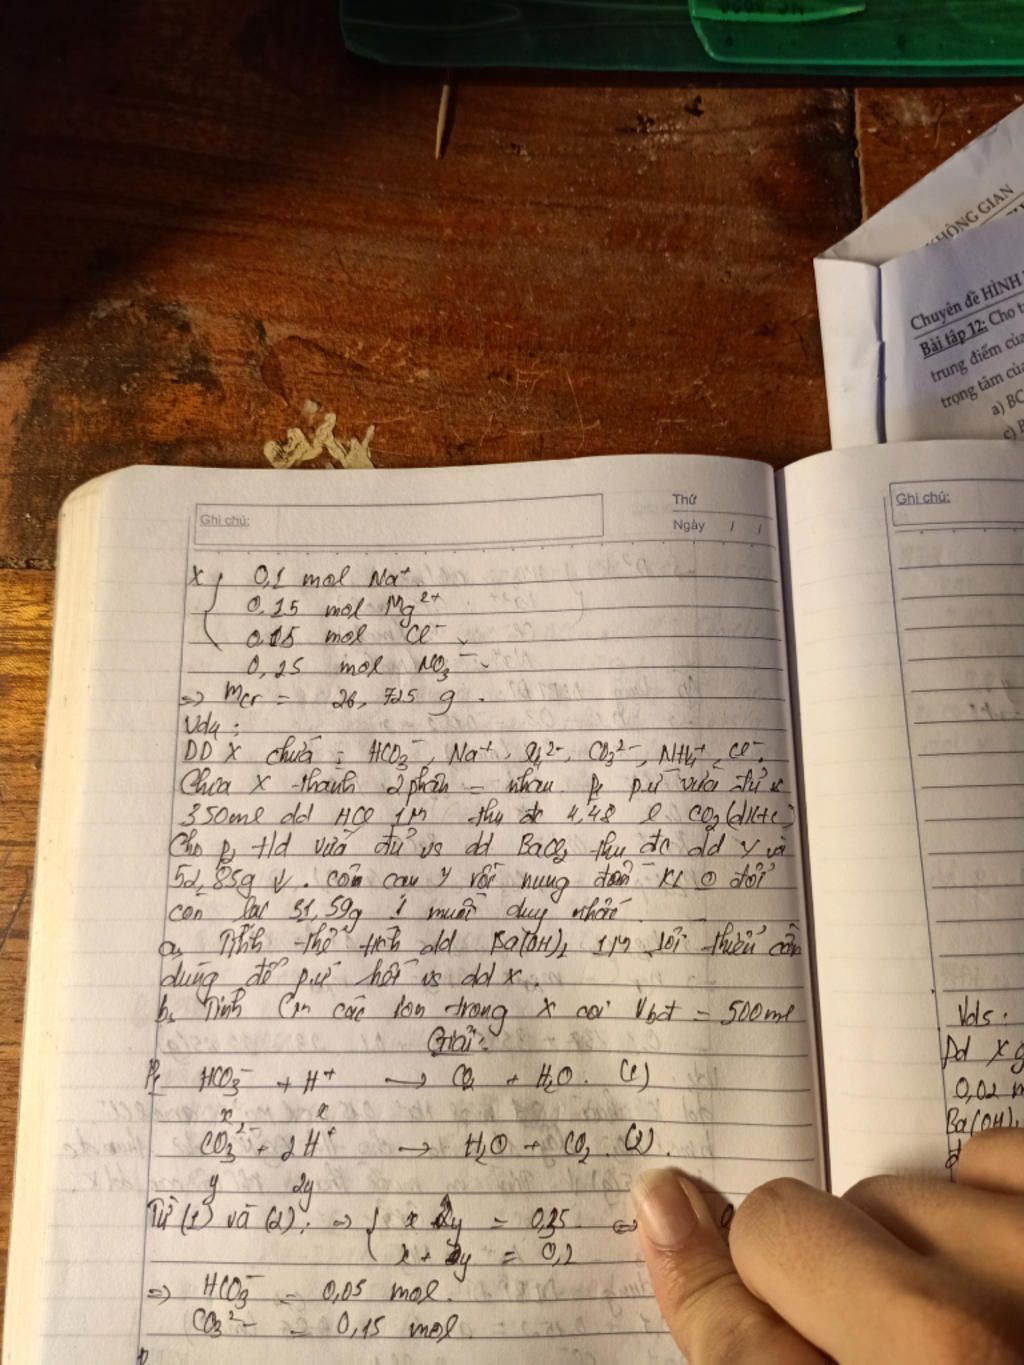 KHÔNG GIAN
Chuyên đề HÌNH
Bài tập 12: Cho t
trung điểm của
trọng tâm của
a) BC
c)
Ghi chú:
Thứ
Ngày / /
X { 0,1 mol Na⁺
0,15 mol Mg²⁺
0,15 mol Cl⁻
0,25 mol NO₃⁻
=> mcr = 26,725 g.
Vd4:
DD X chứa : HCO₃⁻, Na⁺, CO₃²⁻, NH₄⁺, Cl⁻.
Chia X thành 2 phần = nhau. P₁ pứ vừa đủ vs
350ml dd HCl 1M thu đc 4,48 l CO₂ (đktc)
Cho P₂ t/d vừa đủ vs dd BaCl₂ thu đc dd Y và
52,85g ↓. Cô cạn Y rồi nung đến kl 0 đổi
còn lại 31,59g 1 muối duy nhất.
a, Tính thể tích dd Ba(OH)₂ 1M tối thiểu cần
dùng để pứ hết vs dd X.
b, Tính CM các ion trong X coi Vbđ = 500ml
Giải:
P₁ HCO₃⁻ + H⁺ → CO₂ + H₂O. (1)
x x
CO₃²⁻ + 2H⁺ → H₂O + CO₂. (2).
y 2y
Từ (1) và (2): => { x + 2y = 0,35 <=>
x + y = 0,2
=> HCO₃⁻ = 0,05 mol.
CO₃²⁻ = 0,15 mol
Ghi chú:
Vd5:
Dd X g
0,02 m
Ba(OH)₂